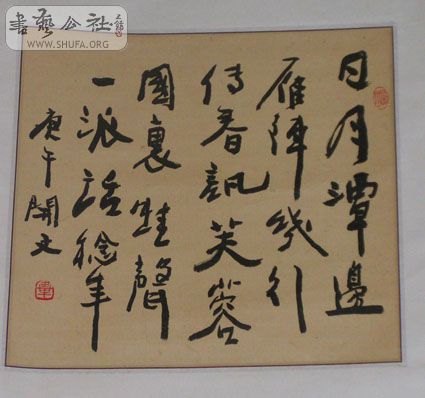 書藝公社
WWW.SHUFA.ORG
日月潭邊
雁陣幾行
傳春訊芙蓉
國裏蛙聲
一派話稔年
庚午開文